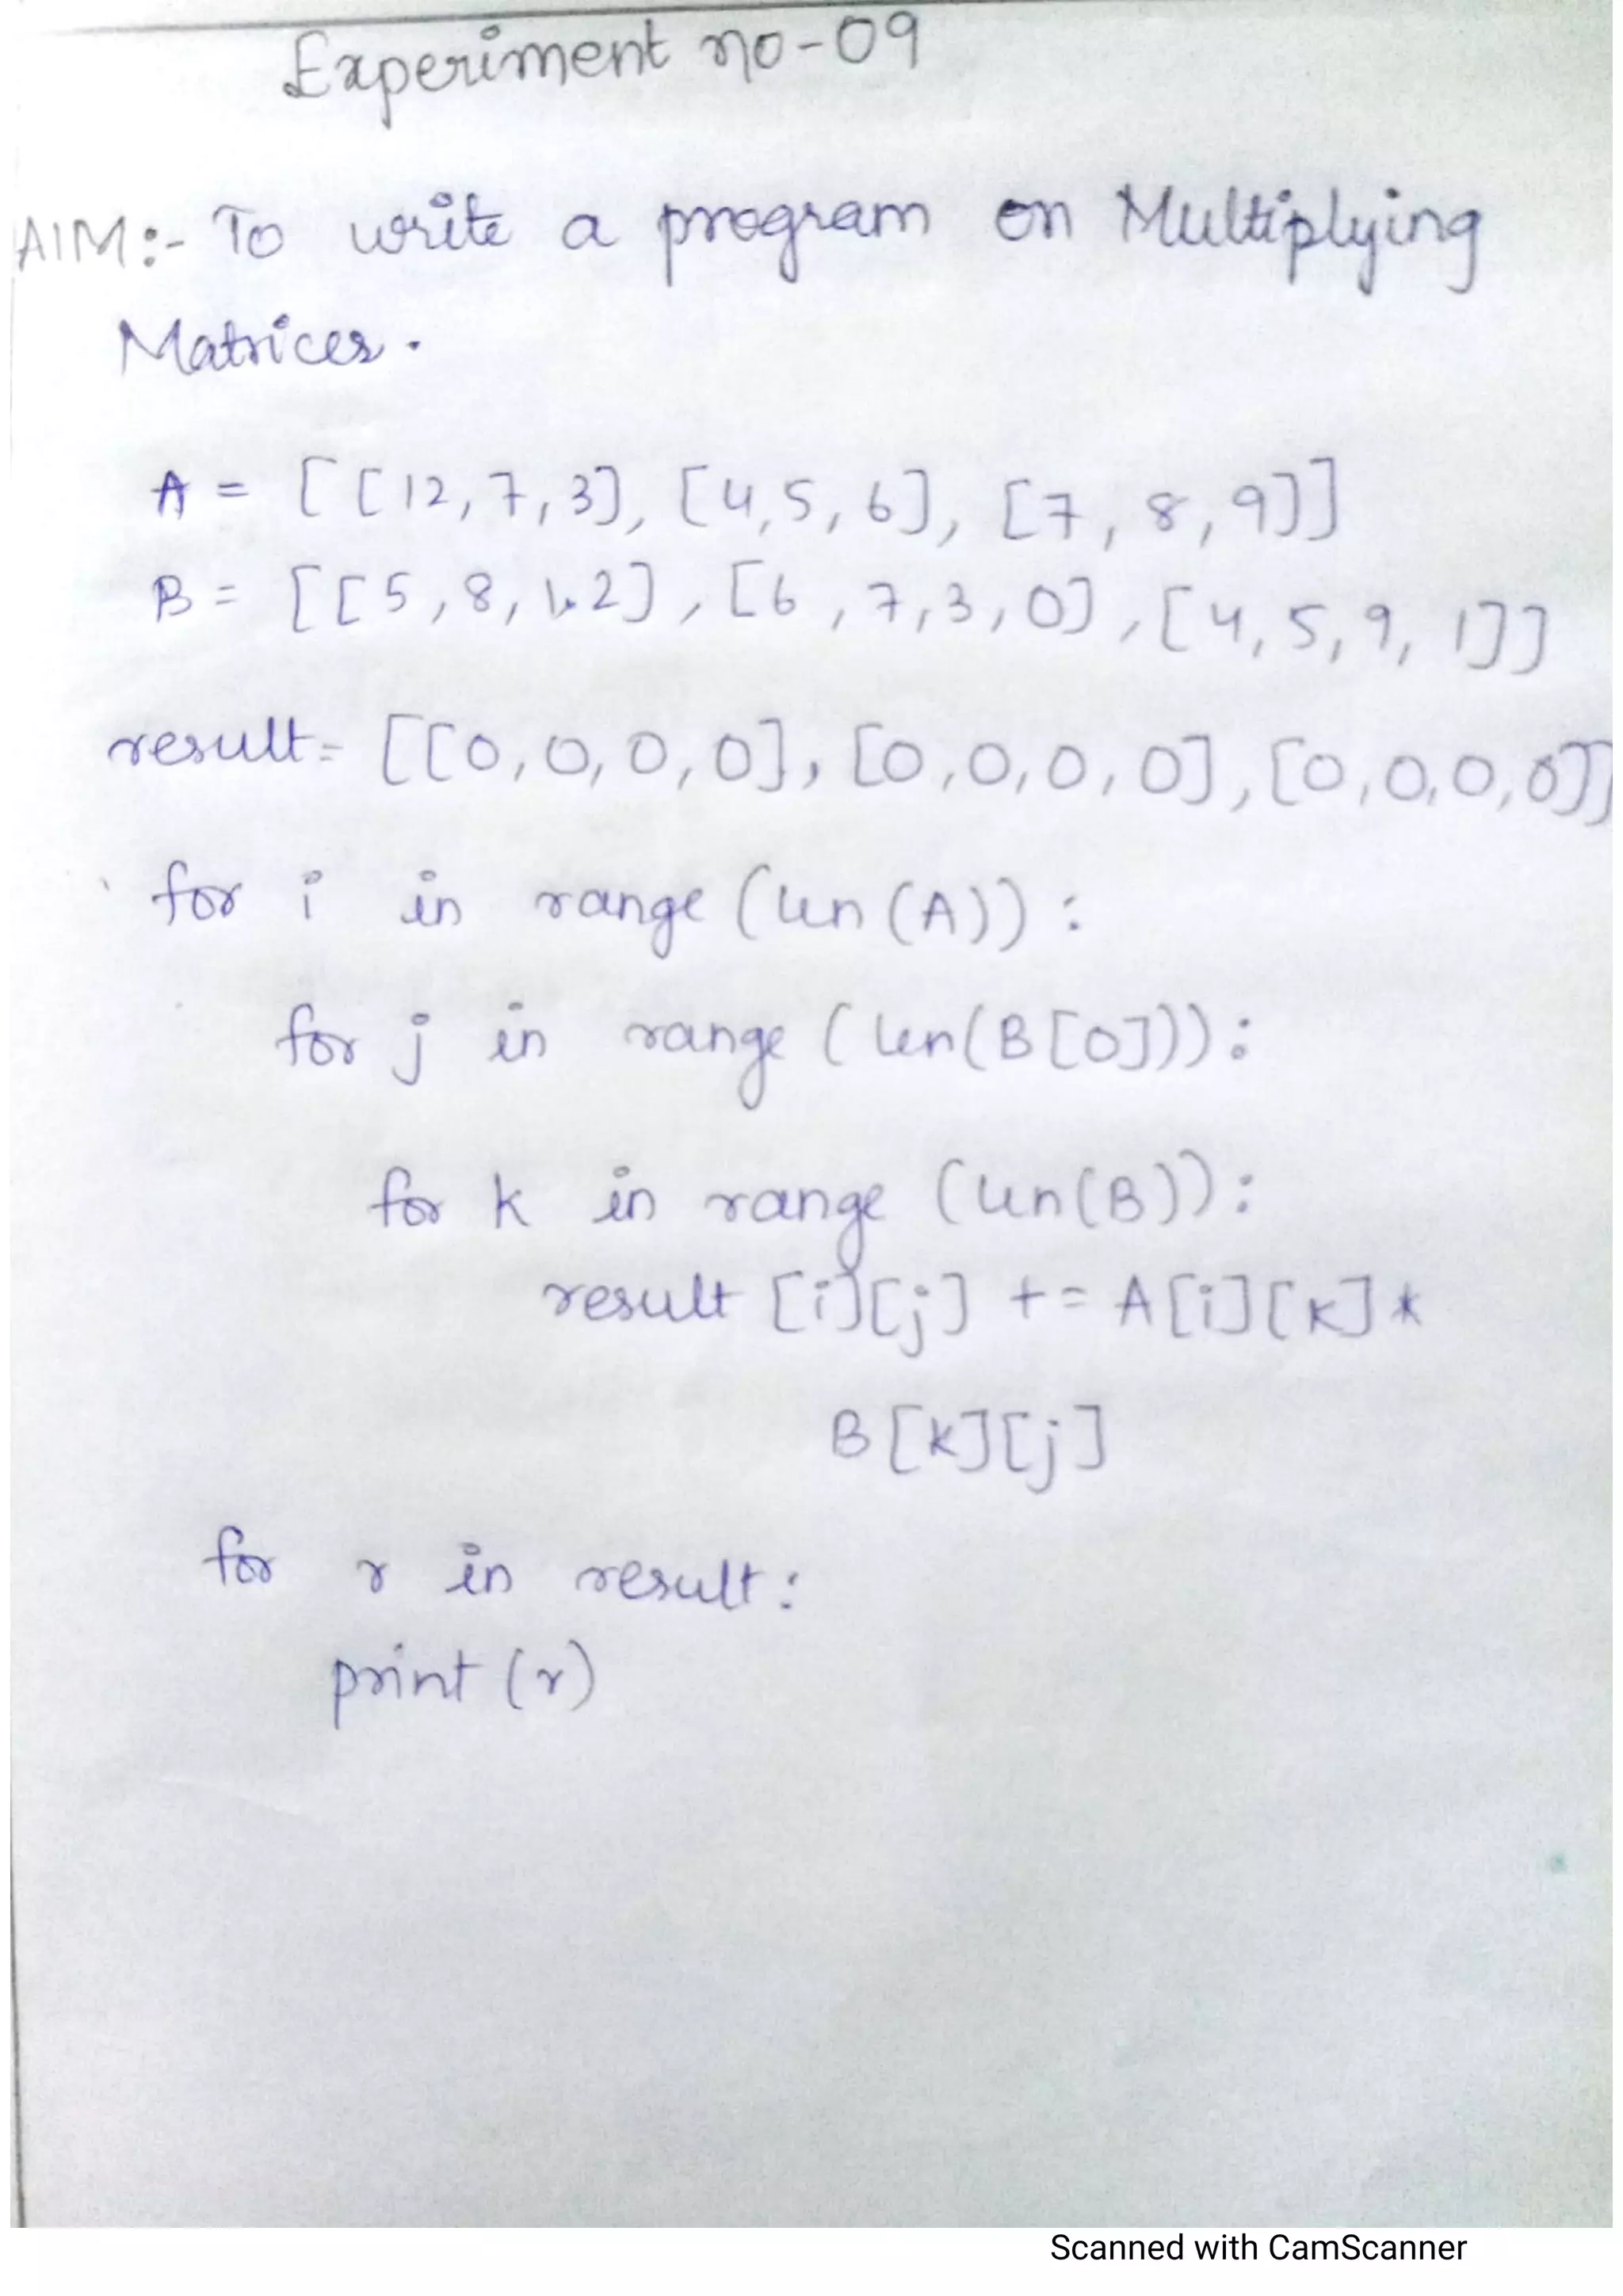 Experiment no-09
AIM:- To write a program on Multiplying
Matrices.
A = [[12,7,3], [4,5,6], [7,8,9]]
B = [[5,8,1,2], [6,7,3,0], [4,5,9,1]]
result= [[0,0,0,0], [0,0,0,0], [0,0,0,0]]
for i in range (len (A)) :
for j in range (len(B[0])):
for k in range (len(B)):
result [i][j] += A[i][k] *
B[k][j]
for r in result:
print (r)
Scanned with CamScanner